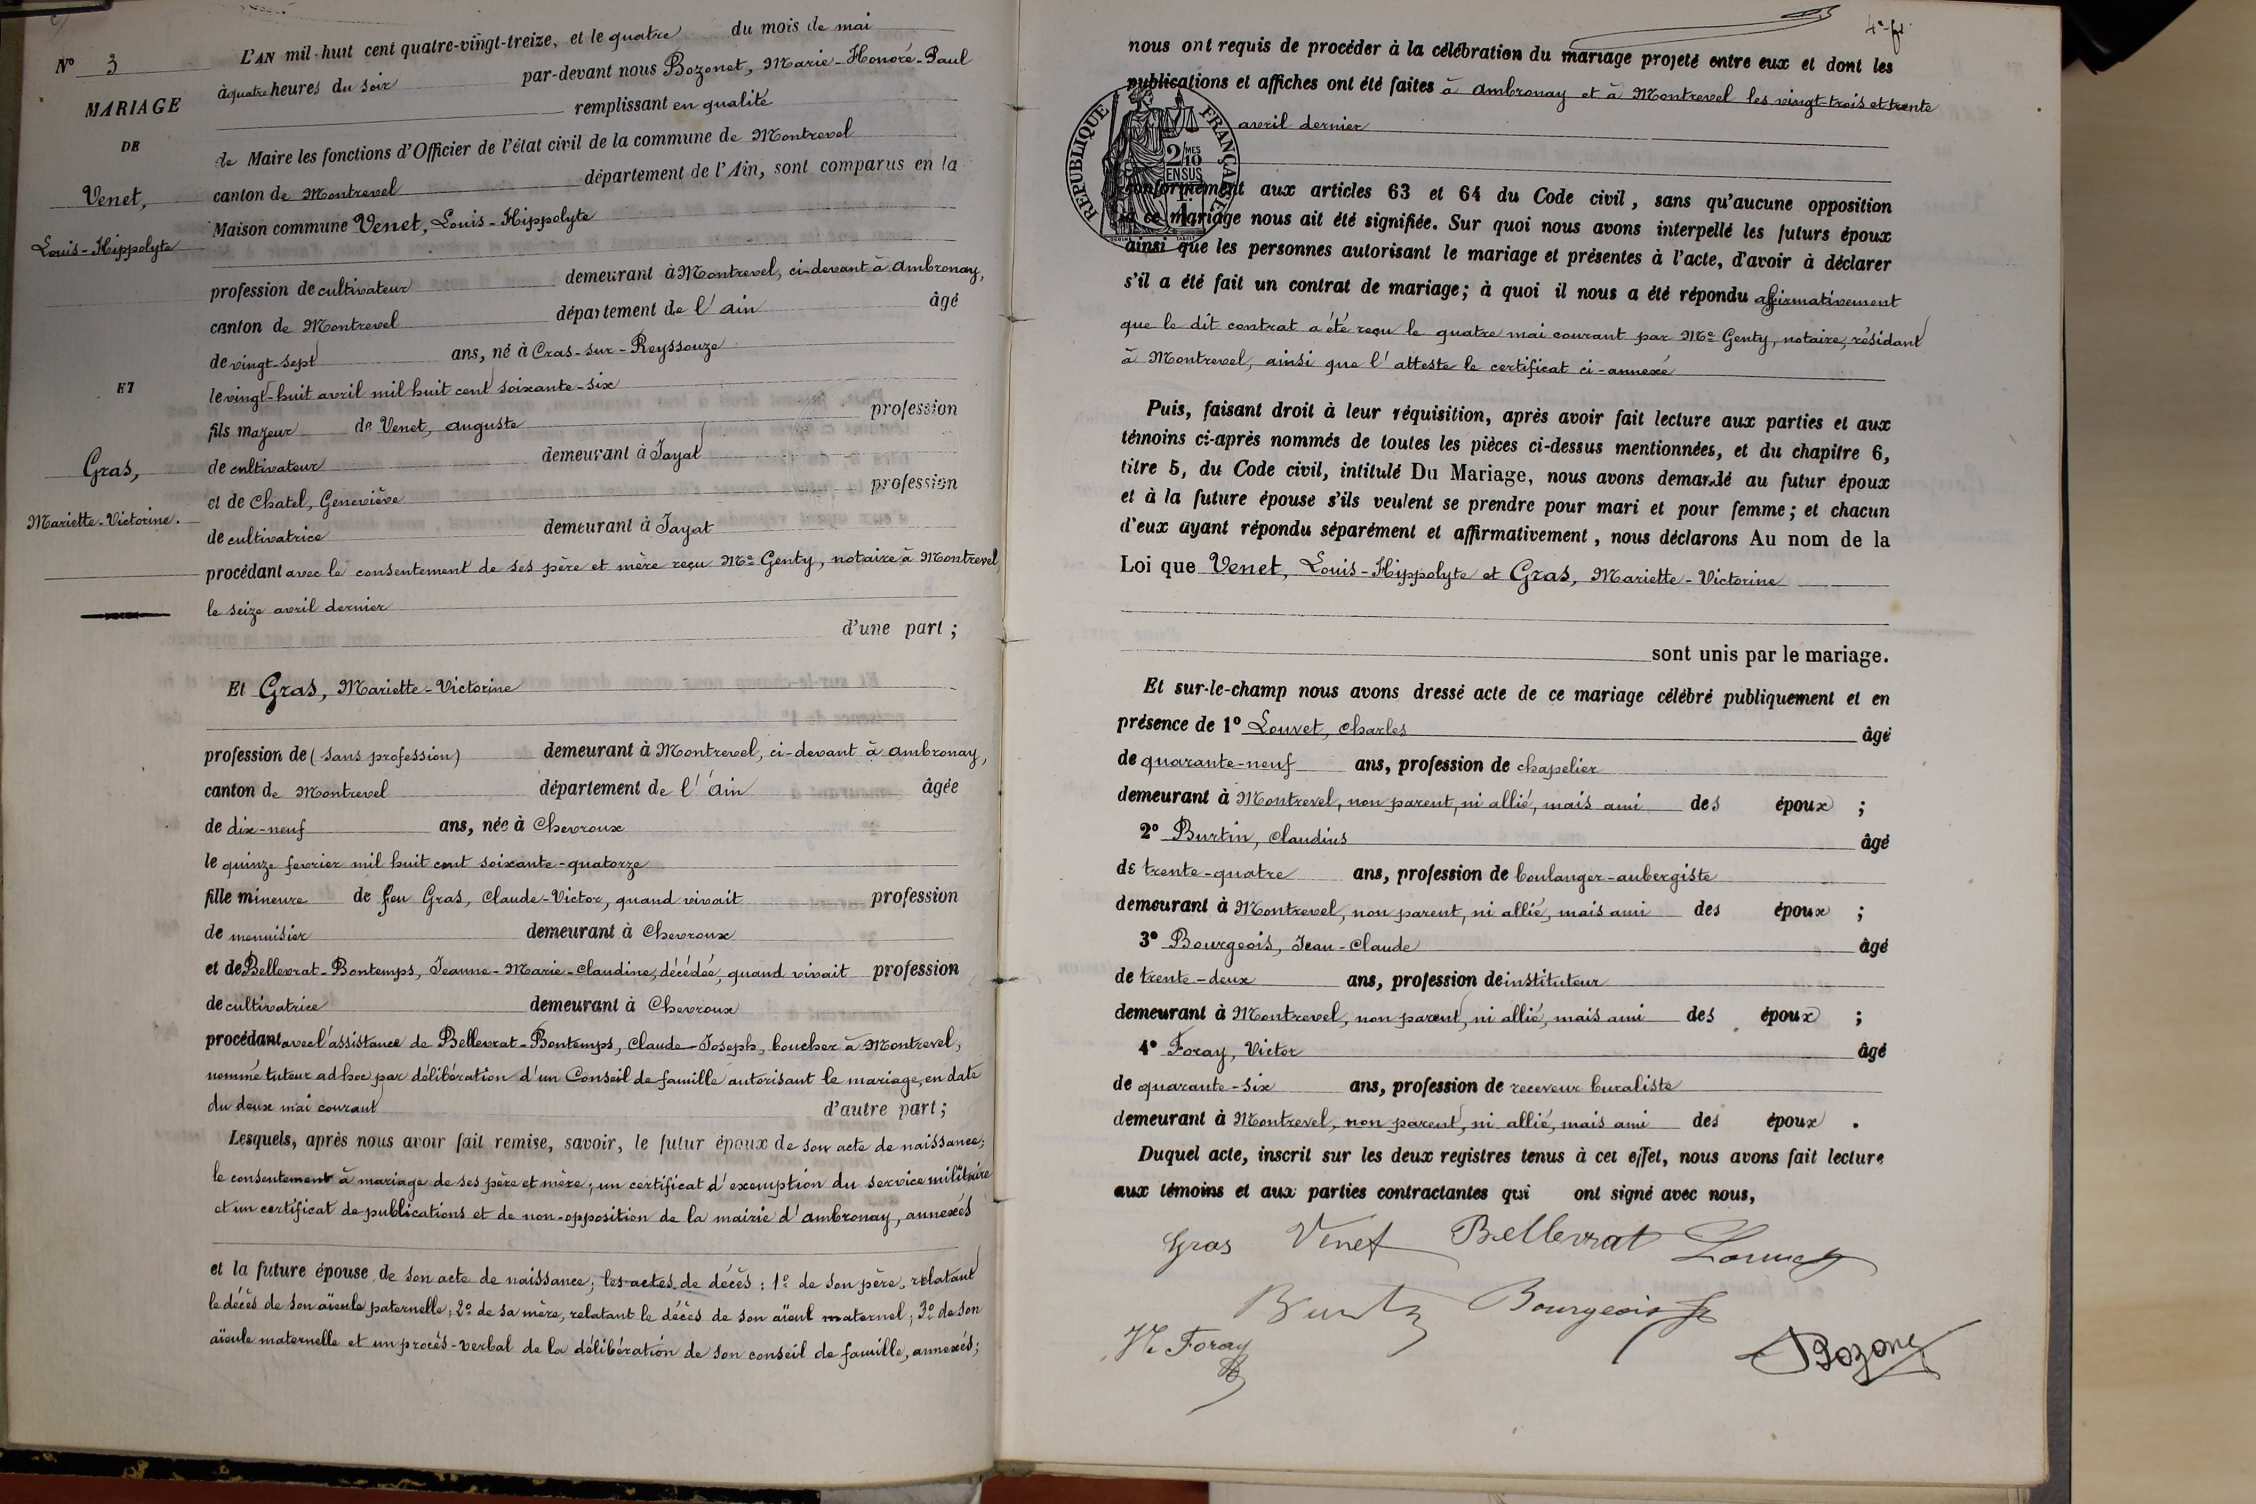 N° 3
MARIAGE
DE
Venet,
Louis-Hippolyte
ET
Gras,
Mariette-Victorine.
L'AN mil-huit cent quatre-vingt-treize, et le quatre du mois de mai
à quatre heures du soir par-devant nous Bozonet, Marie-Honoré-Paul
remplissant en qualité
de Maire les fonctions d'Officier de l'état civil de la commune de Montrevel
canton de Montrevel département de l'Ain, sont comparus en la
Maison commune Venet, Louis-Hippolyte
profession de cultivateur demeurant à Montrevel, ci-devant à Ambronay,
canton de Montrevel département de l'Ain âgé
de vingt-sept ans, né à Cras-sur-Reyssouze
le vingt-huit avril mil huit cent soixante-six
fils majeur de Venet, Auguste profession
de cultivateur demeurant à Jayat
et de Chatel, Geneviève profession
de cultivatrice demeurant à Jayat
procédant avec le consentement de ses père et mère reçu Me Genty, notaire à Montrevel,
le seize avril dernier
d'une part ;
Et Gras, Mariette-Victorine
profession de (sans profession) demeurant à Montrevel, ci-devant à Ambronay,
canton de Montrevel département de l'Ain âgée
de dix-neuf ans, née à Chevroux
le quinze fevrier mil huit cent soixante-quatorze
fille mineure de feu Gras, Claude-Victor, quand vivait profession
de menuisier demeurant à Chevroux
et de Bellevrat-Bontemps, Jeanne-Marie-Claudine, décédée, quand vivait profession
de cultivatrice demeurant à Chevroux
procédant avec l'assistance de Bellevrat-Bontemps, Claude-Joseph, boucher à Montrevel,
nommé tuteur ad hoc par délibération d'un Conseil de famille autorisant le mariage, en date
du deux mai courant d'autre part ;
Lesquels, après nous avoir fait remise, savoir, le futur époux de son acte de naissance;
le consentement à mariage de ses père et mère; un certificat d'exemption du service militaire
et un certificat de publications et de non-opposition de la mairie d'Ambronay, annexés
et la future épouse de son acte de naissance; les actes de décès : 1° de son père, relatant
le décès de son aïeule paternelle; 2° de sa mère, relatant le décès de son aïeul maternel; 3° de son
aïeule maternelle et un procès-verbal de la délibération de son conseil de famille, annexés;
nous ont requis de procéder à la célébration du mariage projeté entre eux et dont les
publications et affiches ont été faites à Ambronay et à Montrevel les vingt-trois et trente
avril dernier
RÉPUBLIQUE FRANÇAISE
2/10MES
EN SUS
conformément aux articles 63 et 64 du Code civil, sans qu'aucune opposition
à ce mariage nous ait été signifiée. Sur quoi nous avons interpellé les futurs époux
ainsi que les personnes autorisant le mariage et présentes à l'acte, d'avoir à déclarer
s'il a été fait un contrat de mariage; à quoi il nous a été répondu affirmativement
que le dit contrat a été reçu le quatre mai courant par Me Genty, notaire, résidant
à Montrevel, ainsi que l'atteste le certificat ci-annexé
Puis, faisant droit à leur réquisition, après avoir fait lecture aux parties et aux
témoins ci-après nommés de toutes les pièces ci-dessus mentionnées, et du chapitre 6,
titre 5, du Code civil, intitulé Du Mariage, nous avons demandé au futur époux
et à la future épouse s'ils veulent se prendre pour mari et pour femme; et chacun
d'eux ayant répondu séparément et affirmativement, nous déclarons Au nom de la
Loi que Venet, Louis-Hippolyte et Gras, Mariette-Victorine
sont unis par le mariage.
Et sur-le-champ nous avons dressé acte de ce mariage célébré publiquement et en
présence de 1° Louvet, Charles âgé
de quarante-neuf ans, profession de chapelier
demeurant à Montrevel, non parent, ni allié, mais ami des époux ;
2° Burtin, Claudius âgé
de trente-quatre ans, profession de boulanger-aubergiste
demeurant à Montrevel, non parent, ni allié, mais ami des époux ;
3° Bourgeois, Jean-Claude âgé
de trente-deux ans, profession de instituteur
demeurant à Montrevel, non parent, ni allié, mais ami des époux ;
4° Foray, Victor âgé
de quarante-six ans, profession de receveur buraliste
demeurant à Montrevel, non parent, ni allié, mais ami des époux .
Duquel acte, inscrit sur les deux registres tenus à cet effet, nous avons fait lecture
aux témoins et aux parties contractantes qui ont signé avec nous,
Gras Venet Bellevrat Louvet
Burtin Bourgeois
Foray
Bozonet